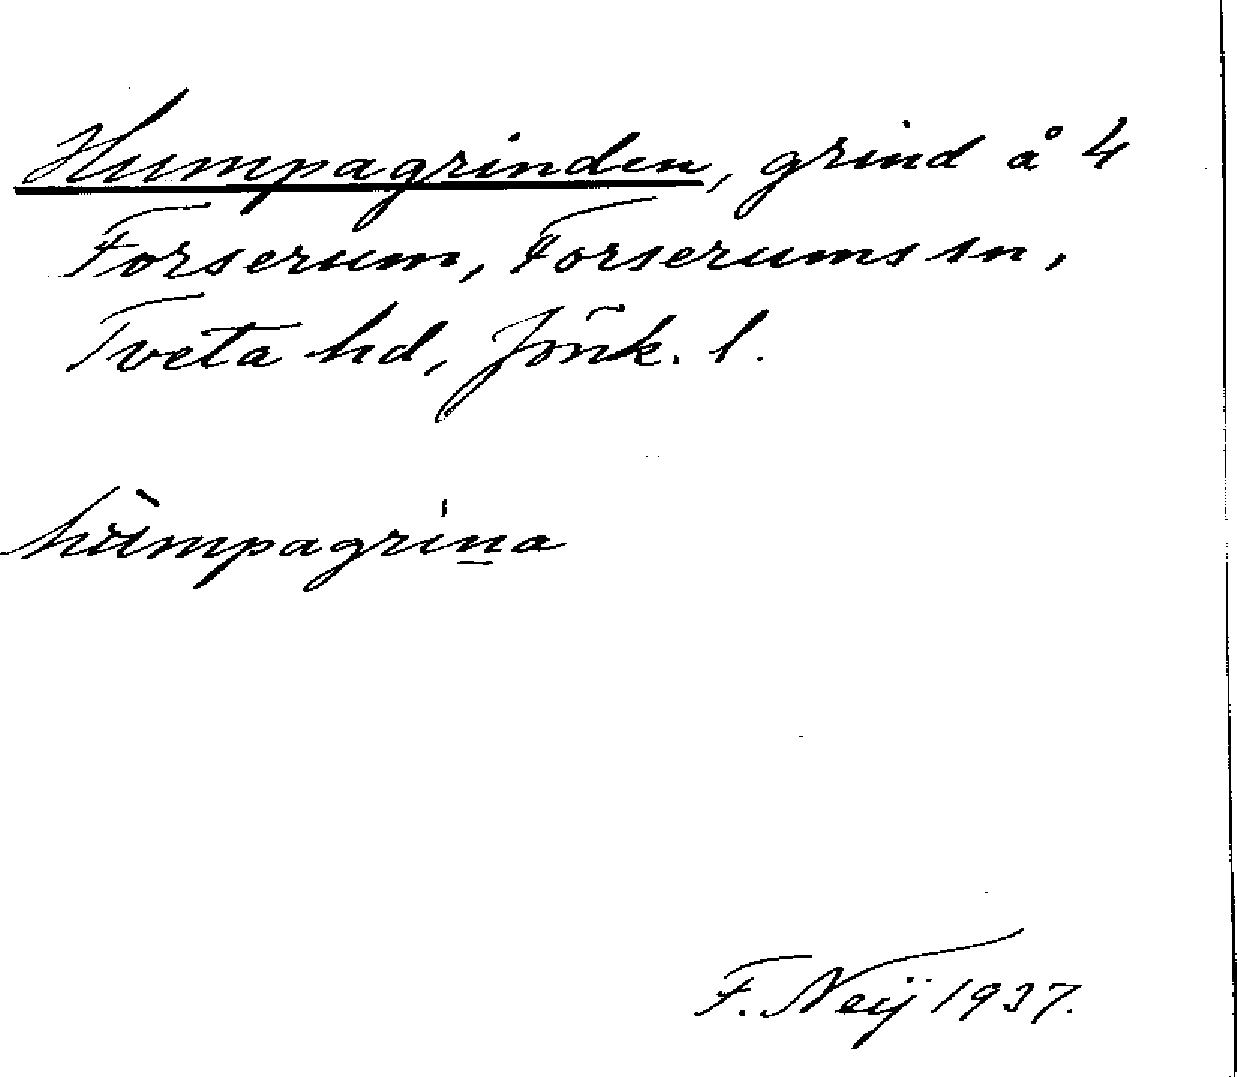 Humpagrinden, grind å 4
Forserum, Forserums sn,
Tveta hd, Jönk. l.
hùmpagrina
F. Neij 1937.